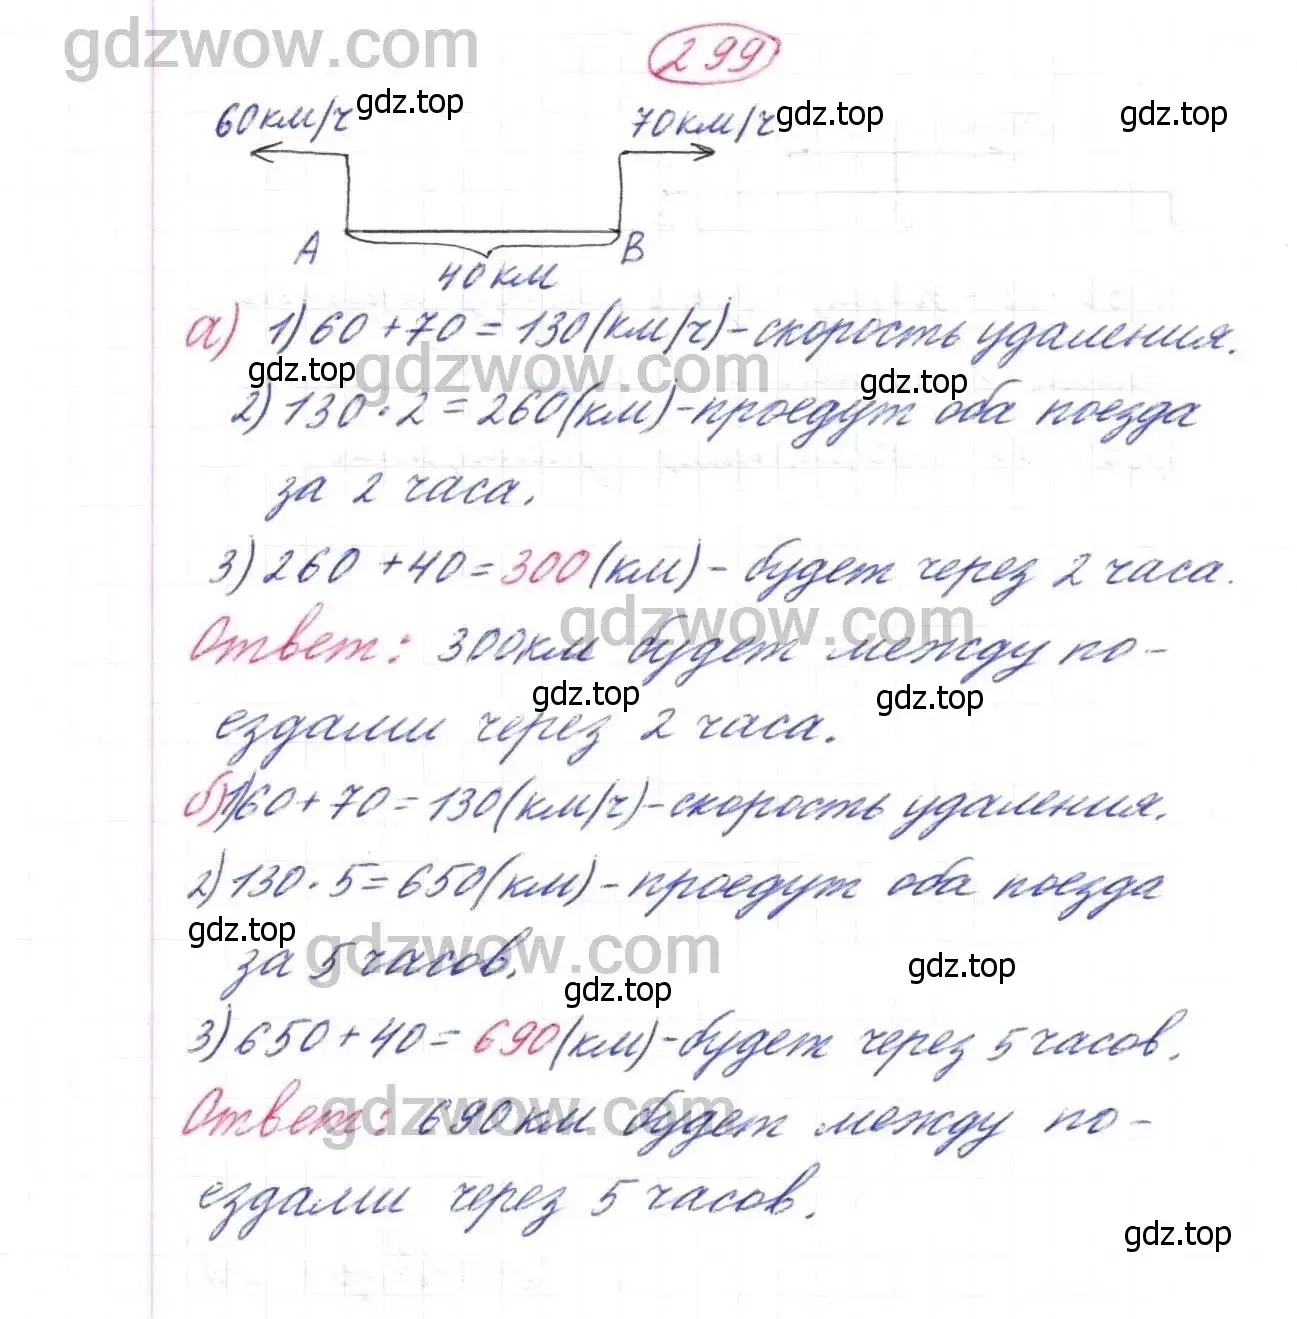 gdzwow.com
299
60км/ч gdz.top 70км/ч gdz.top gdz.top
A B
40км
а) 1) 60 + 70 = 130 (км/ч) - скорость удаления.
gdz.top gdzwow.com gdz.top
2) 130 · 2 = 260 (км) - проедут оба поезда
за 2 часа.
3) 260 + 40 = 300 (км) - будет через 2 часа.
gdzwow.com
Ответ: 300км будет между по-
gdz.top gdz.top
ездами через 2 часа.
б) 1) 60 + 70 = 130 (км/ч) - скорость удаления.
2) 130 · 5 = 650 (км) - проедут оба поезда
gdz.top gdzwow.com
за 5 часов.
gdz.top gdz.top
3) 650 + 40 = 690 (км) - будет через 5 часов.
gdzwow.com
Ответ: 690км будет между по-
ездами через 5 часов.
gdz.top